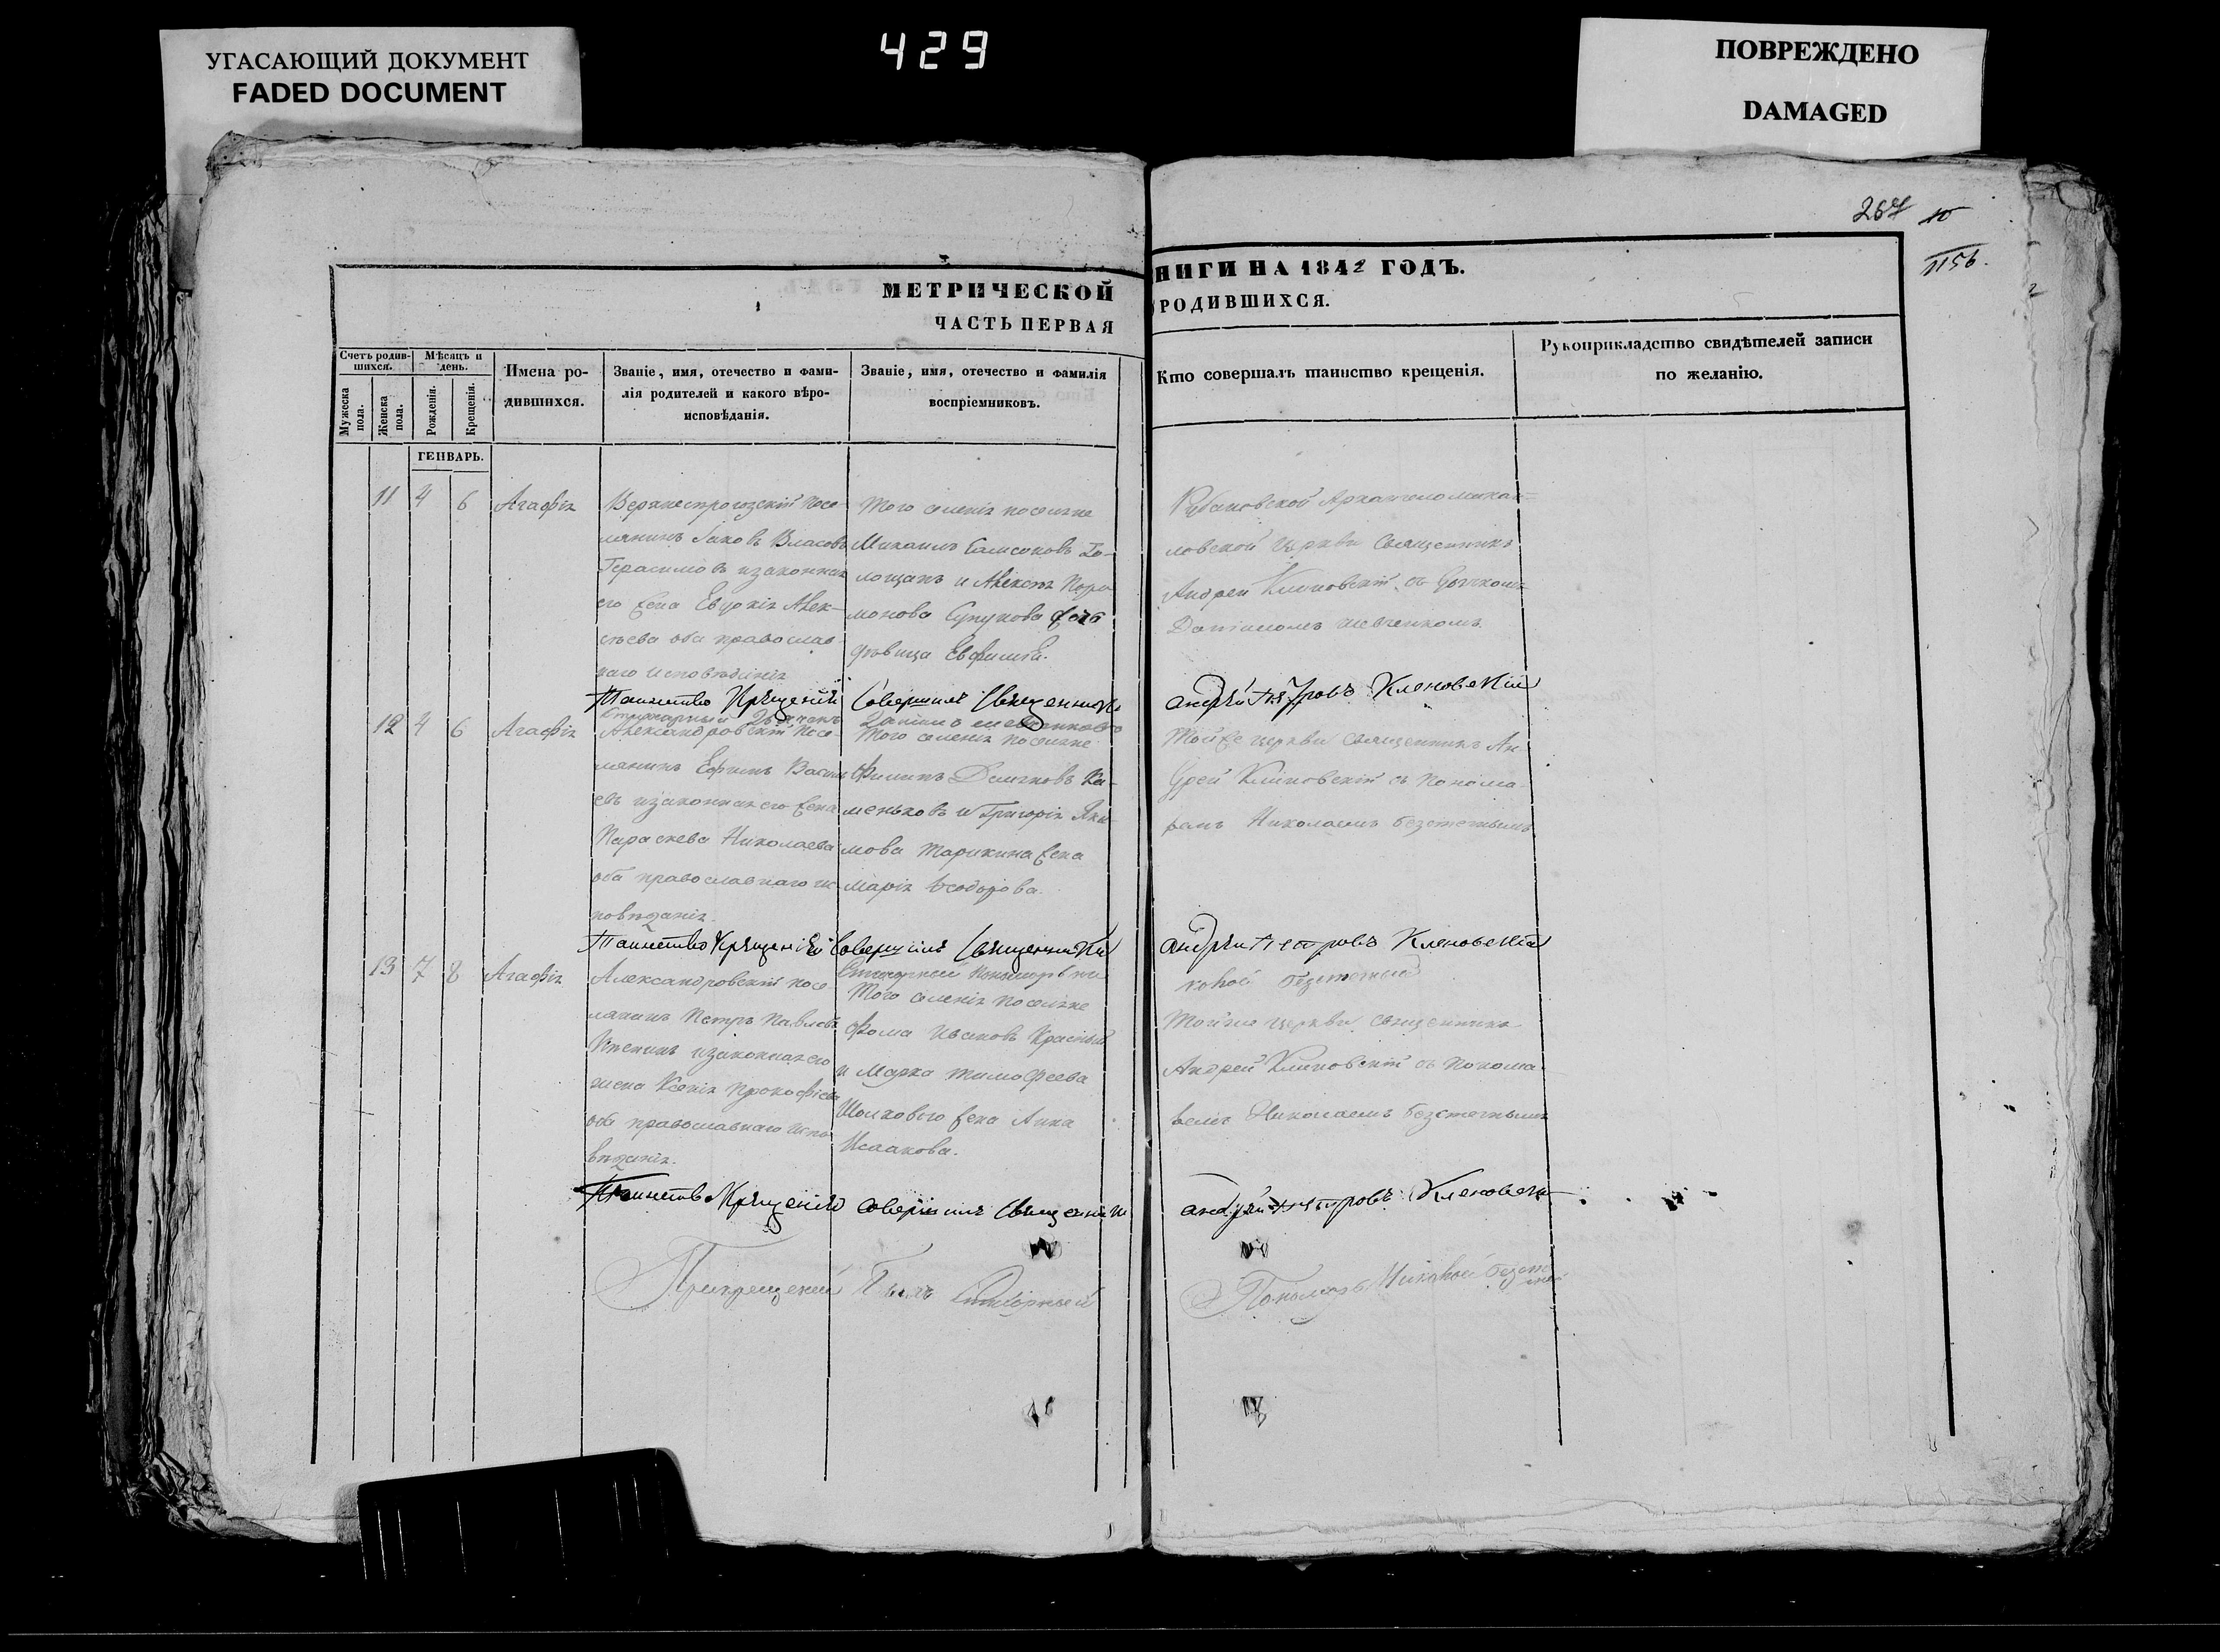 УГАСАЮЩИЙ ДОКУМЕНТ
FADED DOCUMENT
429
ПОВРЕЖДЕНО
DAMAGED
267
10
1156.
МЕТРИЧЕСКОЙ
ЧАСТЬ ПЕРВАЯ
НИГИ НА 1842 ГОДЪ.
РОДИВШИХСЯ.
Счетъ родив-
шихся.
Мужеска
пола.
Женска
пола.
Мѣсяцъ и
день.
Рожденія.
Крещенія.
Имена ро-
дившихся.
Званіе, имя, отечество и фами-
лія родителей и какого вѣро-
исповѣданія.
Званіе, имя, отечество и фамилія
воспріемниковъ.
Кто совершалъ таинство крещенія.
Рукоприкладство свидѣтелей записи
по желанію.
ГЕНВАРЬ.
11 4 6 Агафія
Верхнесерогозскій посе-
лянинъ Іаковъ Власовъ
Герасимовъ и законная
его жена Евдокія Алек-
сѣева оба православ
наго исповѣданія
Того селенія поселяне
Михаилъ Самсоновъ Го-
лощапъ и Алексѣя Пари-
монова
дѣвица Евфимія.
Рубановской Архангеломихаи-
ловской церкви Священникъ
Андрей Клиновскій съ Дьячкомъ
Даніиломъ Шевченкомъ.
Таинство Крещения Совершилъ Священникъ
Андрей Петровъ Кленовский
12 4 6 Агафія
Александровскій посе-
лянинъ Ефимъ Василь
евъ и законная его жена
Параскева Николаева
оба православнаго ис-
повѣданія.
Того селенія поселяне
Филипъ Ка-
меньковъ и Григорія Яки-
мова жена
Марія Ѳеодорова.
Тойже церкви Священникъ Ан-
дрей Клиновскій съ Понома-
ремъ Николаемъ Безстечнымъ
Таинство Крещения Совершилъ Священникъ
Андрей Петровъ Кленовский
13 7 8 Агафія
Александровскій посе-
лянинъ Петръ Павловъ
и законная его
жена Ксенія Прокофіева
оба православнаго испо-
вѣданія.
Того селенія поселяне
Фома Ивановъ Красный
и Марка Тимофеева
жена Анна
Исаакова.
Тойже церкви Священникъ
Андрей Клиновскій съ Понома-
ремъ Николаемъ Безстечнымъ
Таинство Крещения Совершилъ Священникъ
Андрей Петровъ Кленовски
При крещении былъ
Пономарь Николай